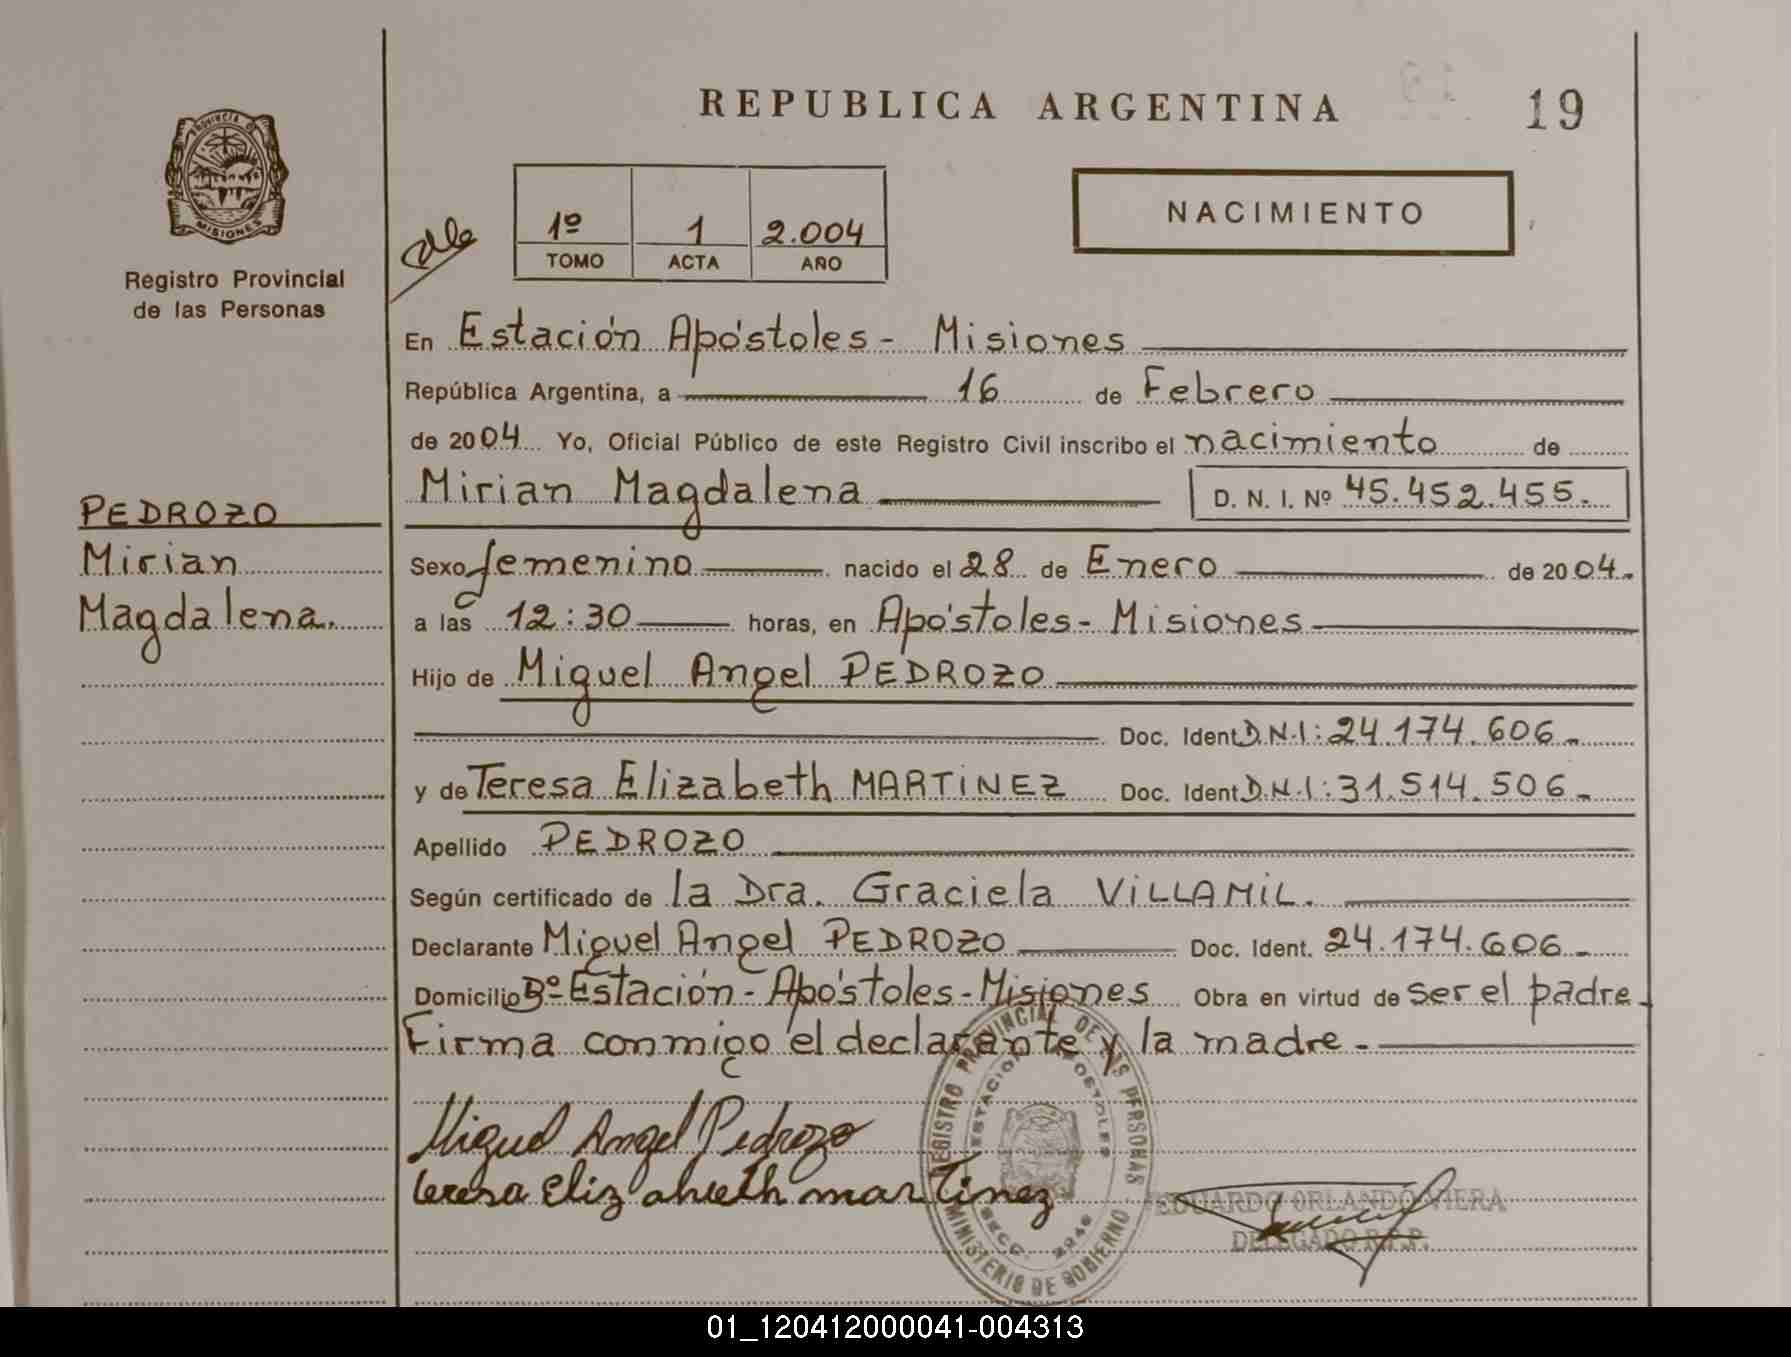 REPUBLICA ARGENTINA
19
PROVINCIA DE
MISIONES
Registro Provincial
de las Personas
1º 1 2.004
TOMO ACTA AÑO
NACIMIENTO
En Estación Apóstoles - Misiones
República Argentina, a 16 de Febrero
de 2004 Yo, Oficial Público de este Registro Civil inscribo el nacimiento de
Mirian Magdalena D. N. I. Nº 45.452.455.
PEDROZO
Mirian
Magdalena.
Sexo femenino nacido el 28 de Enero de 2004.
a las 12:30 horas, en Apóstoles - Misiones
Hijo de Miguel Angel PEDROZO
Doc. Ident D.N.I: 24.174.606-
y de Teresa Elizabeth MARTINEZ Doc. Ident D.N.I: 31.514.506-
Apellido PEDROZO
Según certificado de la Dra. Graciela VILLAMIL.
Declarante Miguel Angel PEDROZO Doc. Ident. 24.174.606-
Domicilio Bº Estación - Apóstoles - Misiones Obra en virtud de ser el padre.
Firma conmigo el declarante y la madre -
Miguel Angel Pedrozo
teresa Elizabueth martinez
REGISTRO PROVINCIAL DE LAS PERSONAS
ESTACION APOSTOLES
SECC. 2046
MINISTERIO DE GOBIERNO
EDUARDO ORLANDO VIERA
DELEGADO R.P.P.
01_120412000041-004313